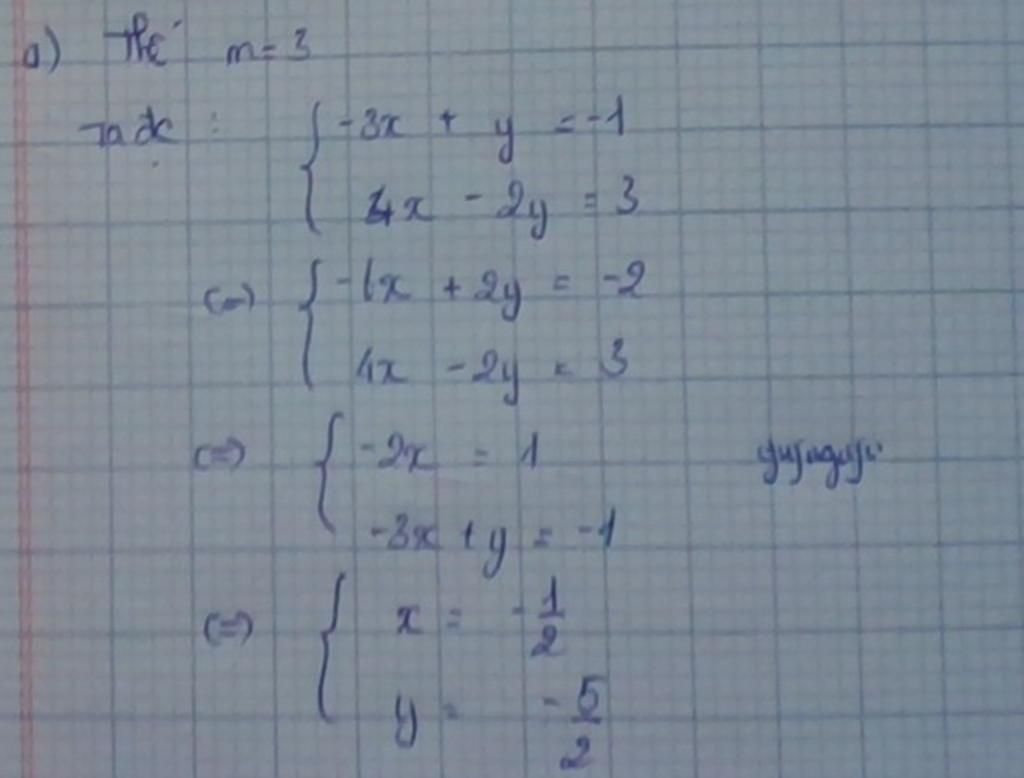 a) Thế m = 3
Ta đc :
{ -3x + y = -1
4x - 2y = 3
(=) { -6x + 2y = -2
4x - 2y = 3
(=) { -2x = 1
-3x + y = -1
(=) { x = -1/2
y = -5/2